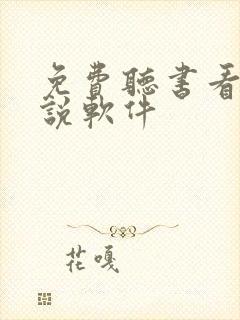 免費聽書看
說軟件
花嘎